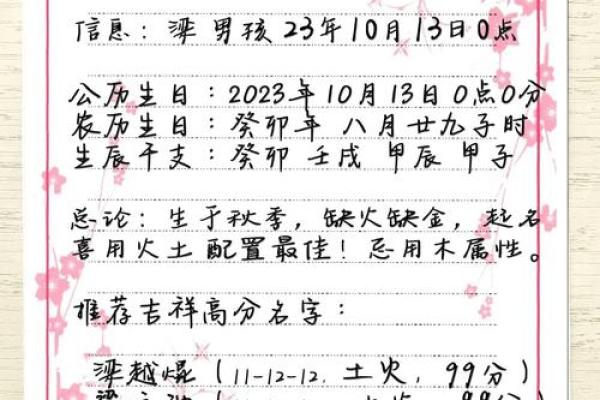 信息：梁 男孩 23年10月13日0点
公历生日：2023年10月13日0点0分
农历生日：癸卯年 八月廿九子时
生辰干支：癸卯 壬戌 甲辰 甲子
总论：生于秋季，缺火缺金，起名
喜用火土 配置最佳！忌用木属性。
推荐吉祥高分名字：
梁越焜（11-12-12，土火，99分）